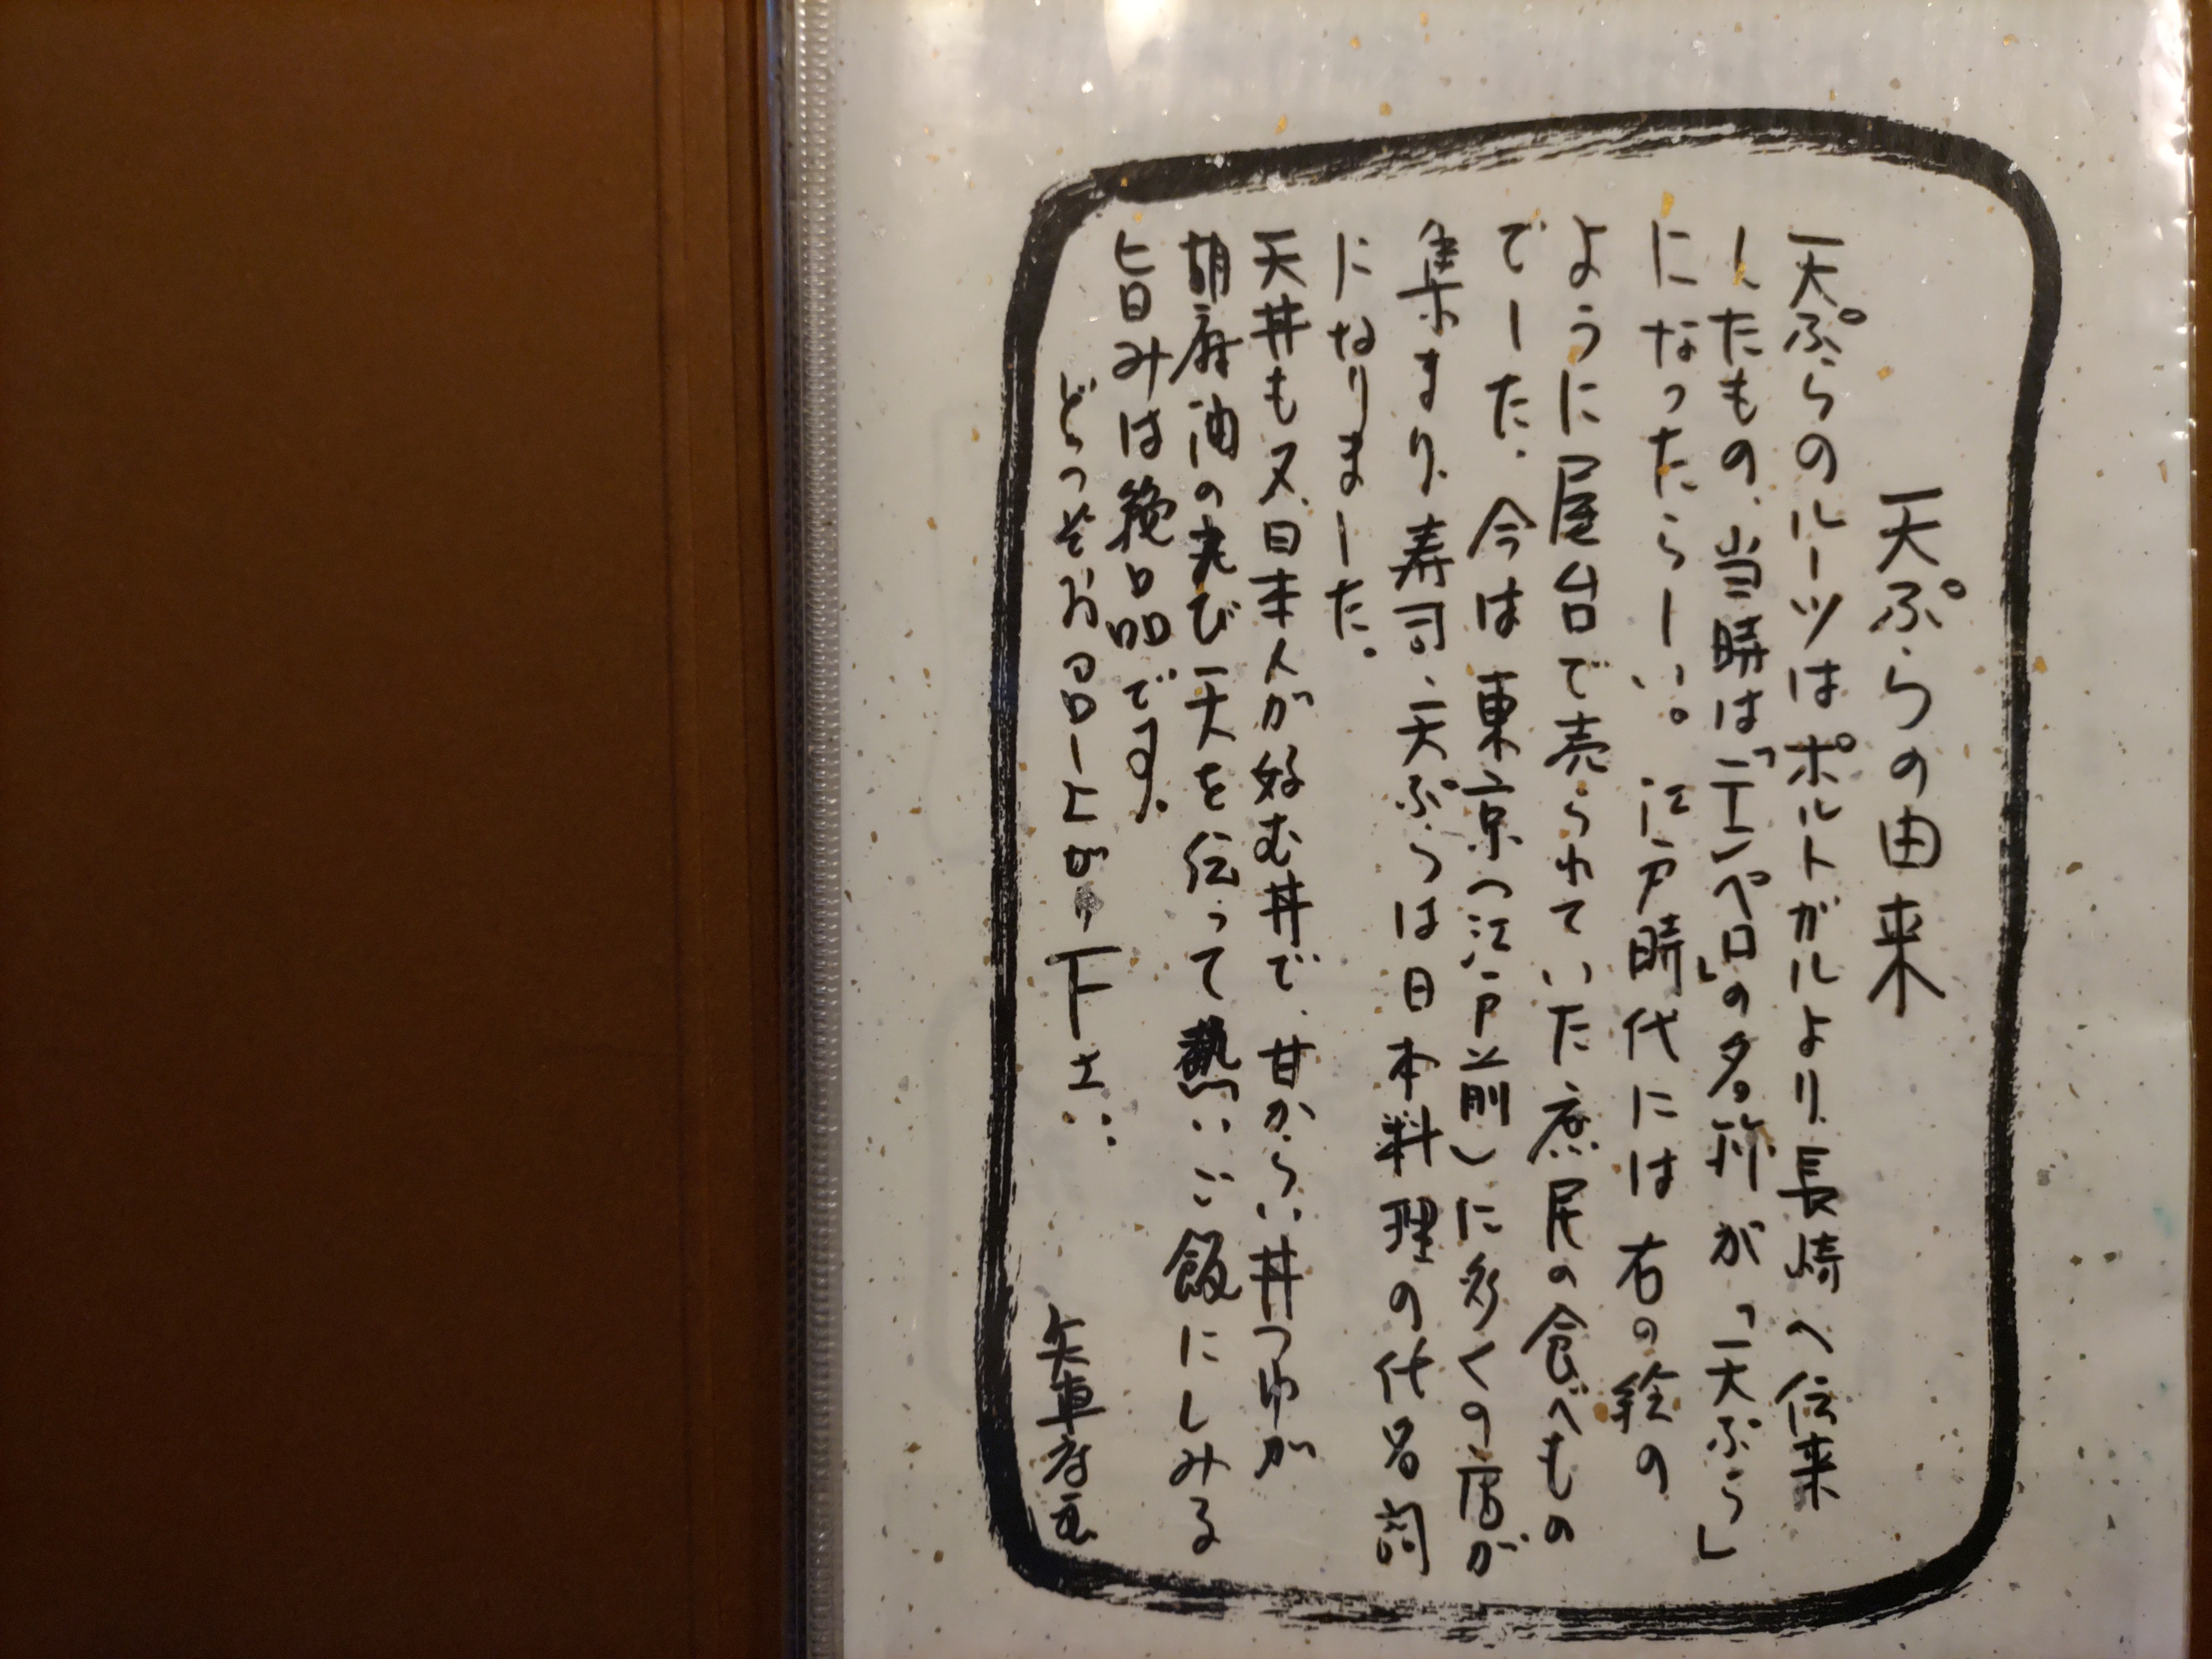 天ぷらの由来
天ぷらのルーツはポルトガルより、長崎へ伝来
したもの、当時は「テンペロ」の名称が「天ぷら」
になったらしい。江戸時代には右の絵の
ように屋台で売られていた庶民の食べもの
でした。今は東京(江戸前)に多くの店が
集まり、寿司、天ぷらは日本料理の代名詞
になりました。
天丼も又、日本人が好む丼で、甘からい丼つゆが
胡麻油の香び天を伝って熱いご飯にしみる
旨みは絶品です。
どうぞお召し上がり下さい
矢車店主